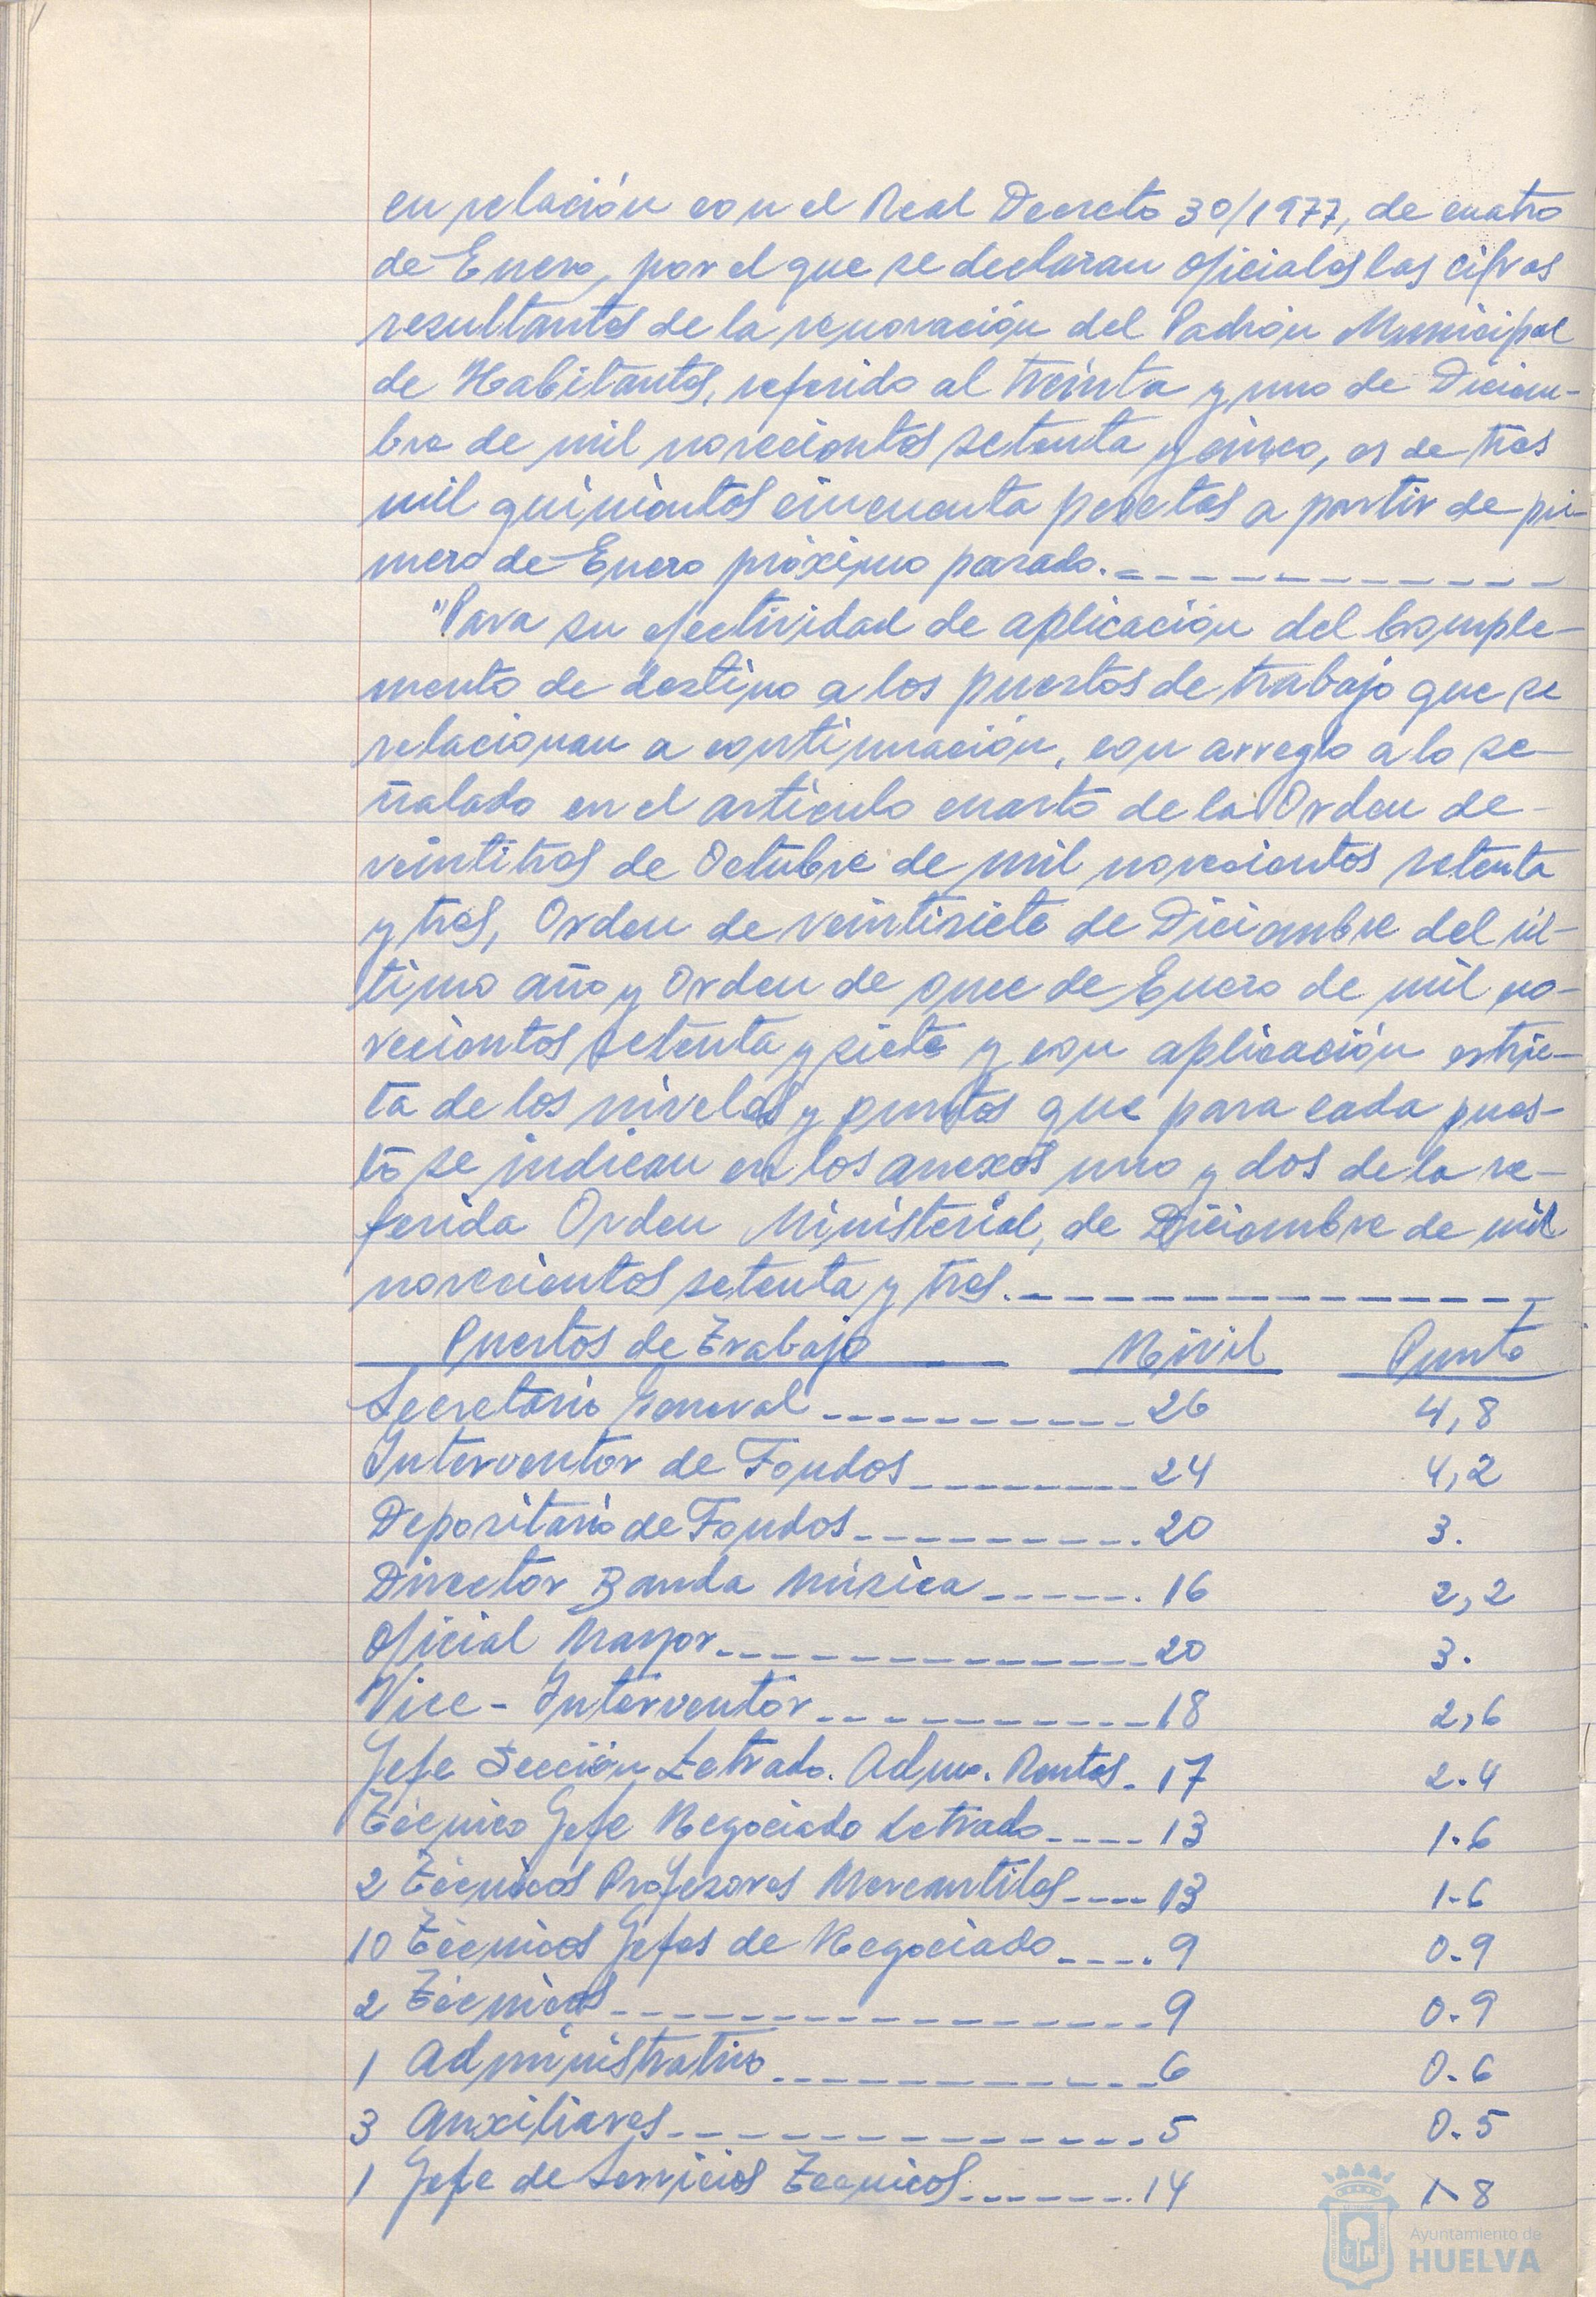 en relación con el Real Decreto 30/1977, de cuatro
de Enero, por el que se declaran oficiales las cifras
resultantes de la renovación del Padrón Municipal
de Habitantes, referido al treinta y uno de Diciem-
bre de mil novecientos setenta y cinco, es de tres
mil quinientos cincuenta pesetas a partir de pri-
mero de Enero próximo pasado.
"Para su efectividad de aplicación del Comple-
mento de destino a los puestos de trabajo que se
relacionan a continuación, con arreglo a lo se-
ñalado en el artículo cuarto de la Orden de
veintitres de Octubre de mil novecientos setenta
y tres, Orden de veintisiete de Diciembre del úl-
timo año y Orden de once de Enero de mil no-
vecientos setenta y siete y con aplicación estric-
ta de los niveles y puntos que para cada pues-
to se indican en los anexos uno y dos de la re-
ferida Orden Ministerial, de Diciembre de mil
novecientos setenta y tres.
Puestos de Trabajo Nivil Punto
Secretario General 26 4,8
Interventor de Fondos 24 4,2
Depositario de Fondos 20 3.
Director Banda Música 16 2,2
Oficial Mayor 20 3.
Vice-Interventor 18 2,6
Jefe Sección Letrado. Admo. Rentas 17 2.4
Técnico Jefe Negociado Letrado 13 1.6
2 Técnicos Profesores Mercantiles 13 1-6
10 Técnicos Jefes de Negociado 9 0-9
2 Técnicos 9 0-9
1 Administrativo 6 0-6
3 Auxiliares 5 0.5
1 Jefe de Servicios Tecnicos 14 1-8
Ayuntamiento de
HUELVA